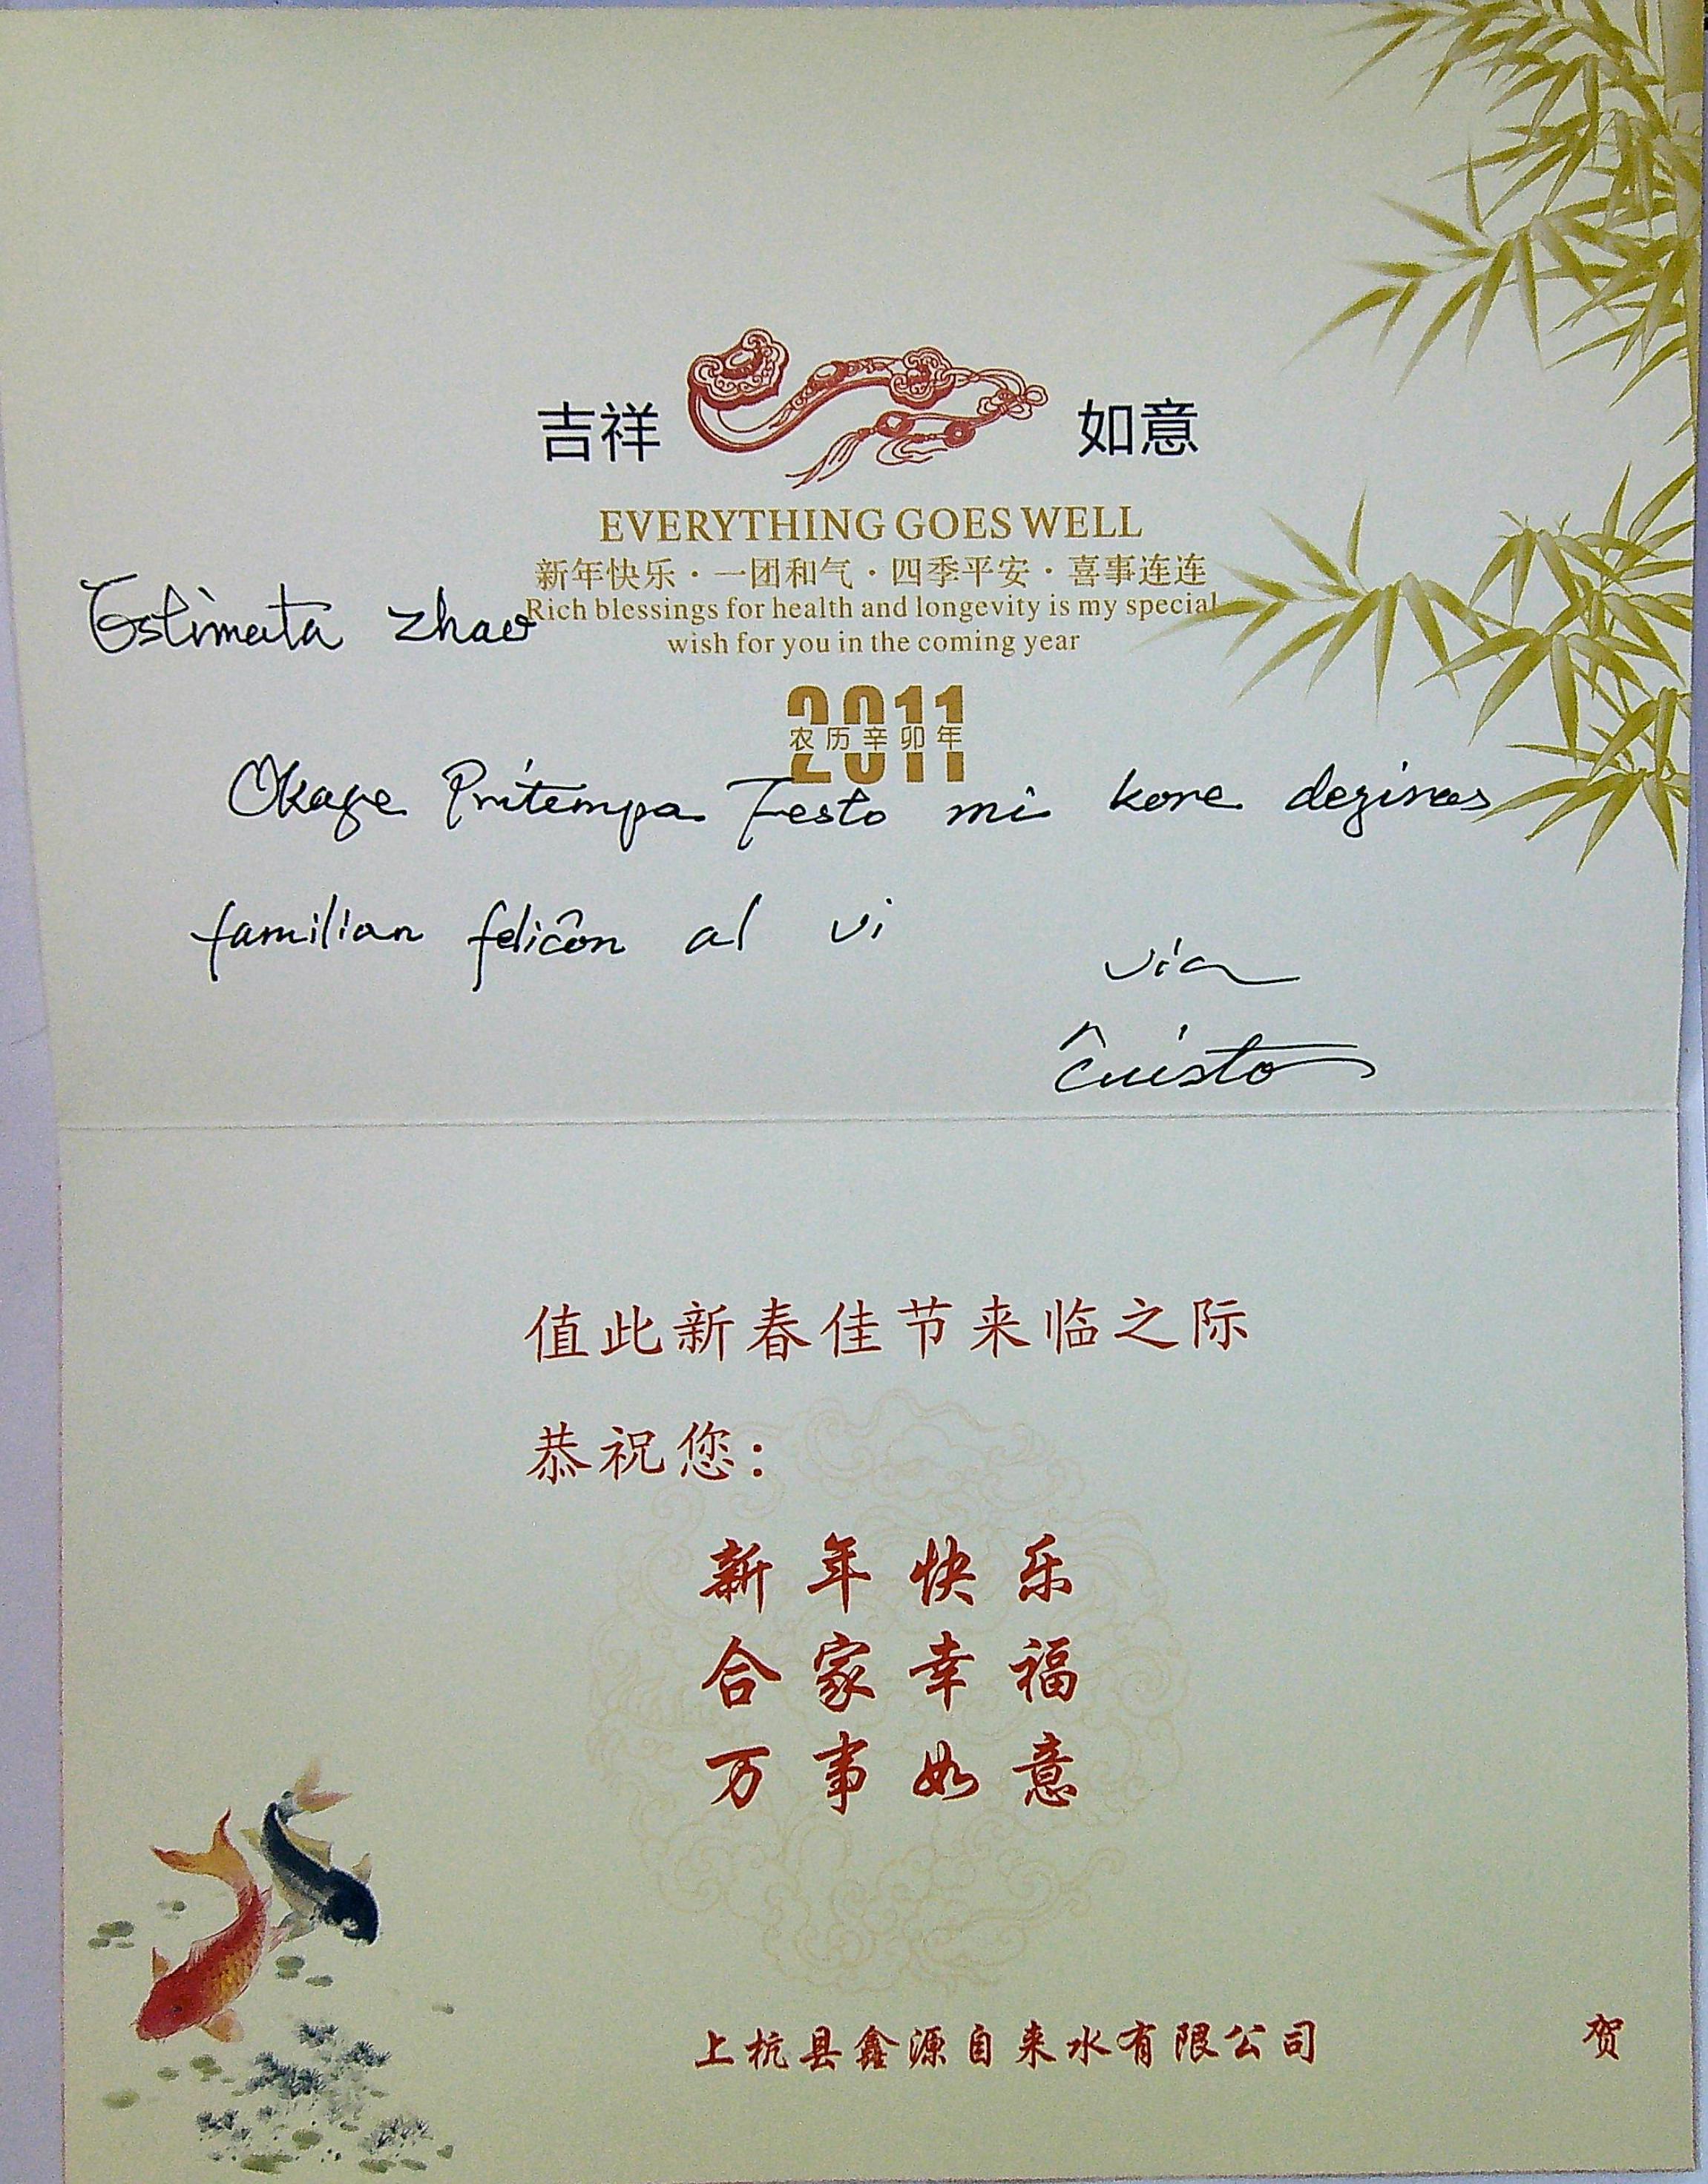 吉祥 如意
EVERYTHING GOES WELL
新年快乐·一团和气·四季平安·喜事连连
Rich blessings for health and longevity is my special
wish for you in the coming year
Estimata zhao
2011
农历辛卯年
Okaze Printempa Festo mi kore deziras
familian feliĉon al vi
via
Ĉuisto
值此新春佳节来临之际
恭祝您：
新年快乐
合家幸福
万事如意
上杭县鑫源自来水有限公司 贺